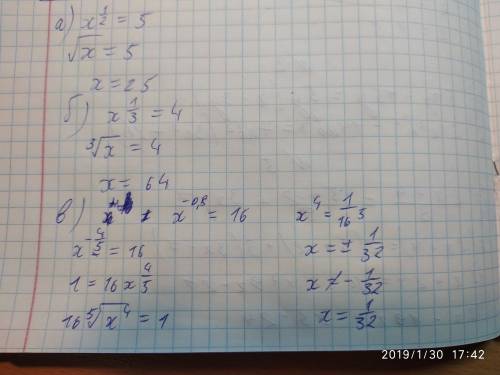 а) x^{1/2} = 5
√x = 5
x = 25
б) x^{1/3} = 4
∛x = 4
x = 64
в) x^{-0,8} = 16
x^{-4/5} = 16
1 = 16x^{4/5}
16 ⁵√x⁴ = 1
x⁴ = 1/16⁵
x = ± 1/32
x ≠ - 1/32
x = 1/32
2019/1/30 17:42